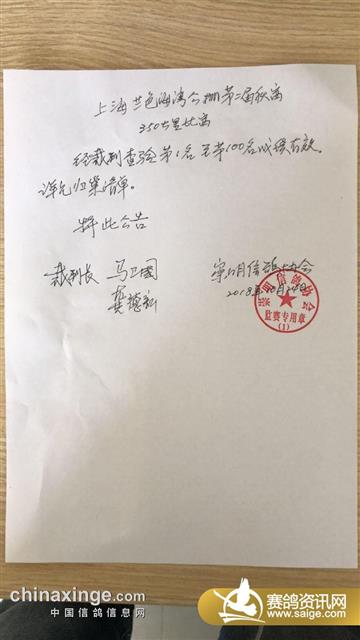 上海兰色海湾公棚第二届秋赛
350公里比赛
经裁判查验第1名至第100名成绩有效。
详见归巢清单。
特此公告
裁判长 马卫国
龚德新
崇明信鸽协会
2018年10月24日
崇明信鸽协会
监赛专用章
(1)
chinaxinge.com
中国信鸽信息网
赛鸽资讯网
www.saige.com